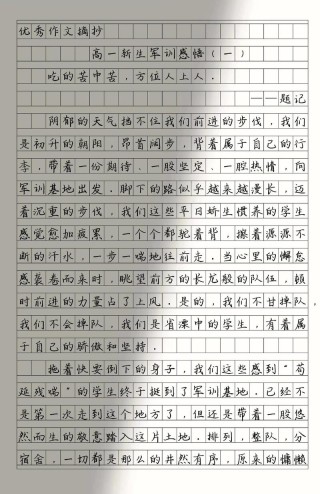 优秀作文摘抄
高一新生军训感悟(一)
吃的苦中苦,方位人上人.
——题记
阴郁的天气挡不住我们前进的步伐,我们
是初升的朝阳,昂首阔步,背着属于自己的行
李,带着一份期待,一股坚定,一腔热情,向
军训基地出发,脚下的路似乎越来越漫长,迈
着沉重的步伐,我们这些平日娇生惯养的学生
感觉愈加疲累,一个个都驼着背,擦着源源不
断的汗水,一步一喘地往前走,当心里的懈怠
感袭卷而来时,眺望前方的长龙般的队伍,顿
时前进的力量占了上风,是的,我们不甘掉队,
我们不会掉队,我们是省溧中的学生,有着属
于自己的骄傲和坚持.
拖着快要倒下的身子,我们这些感到“苟
延残喘”的学生终于挺到了军训基地,已经不
是第一次走到这个地方了,但还是带着一股悠
然而生的敬意踏入这片土地,排列,整队,分
宿舍,一切都是那么的井然有序,原来的慵懒